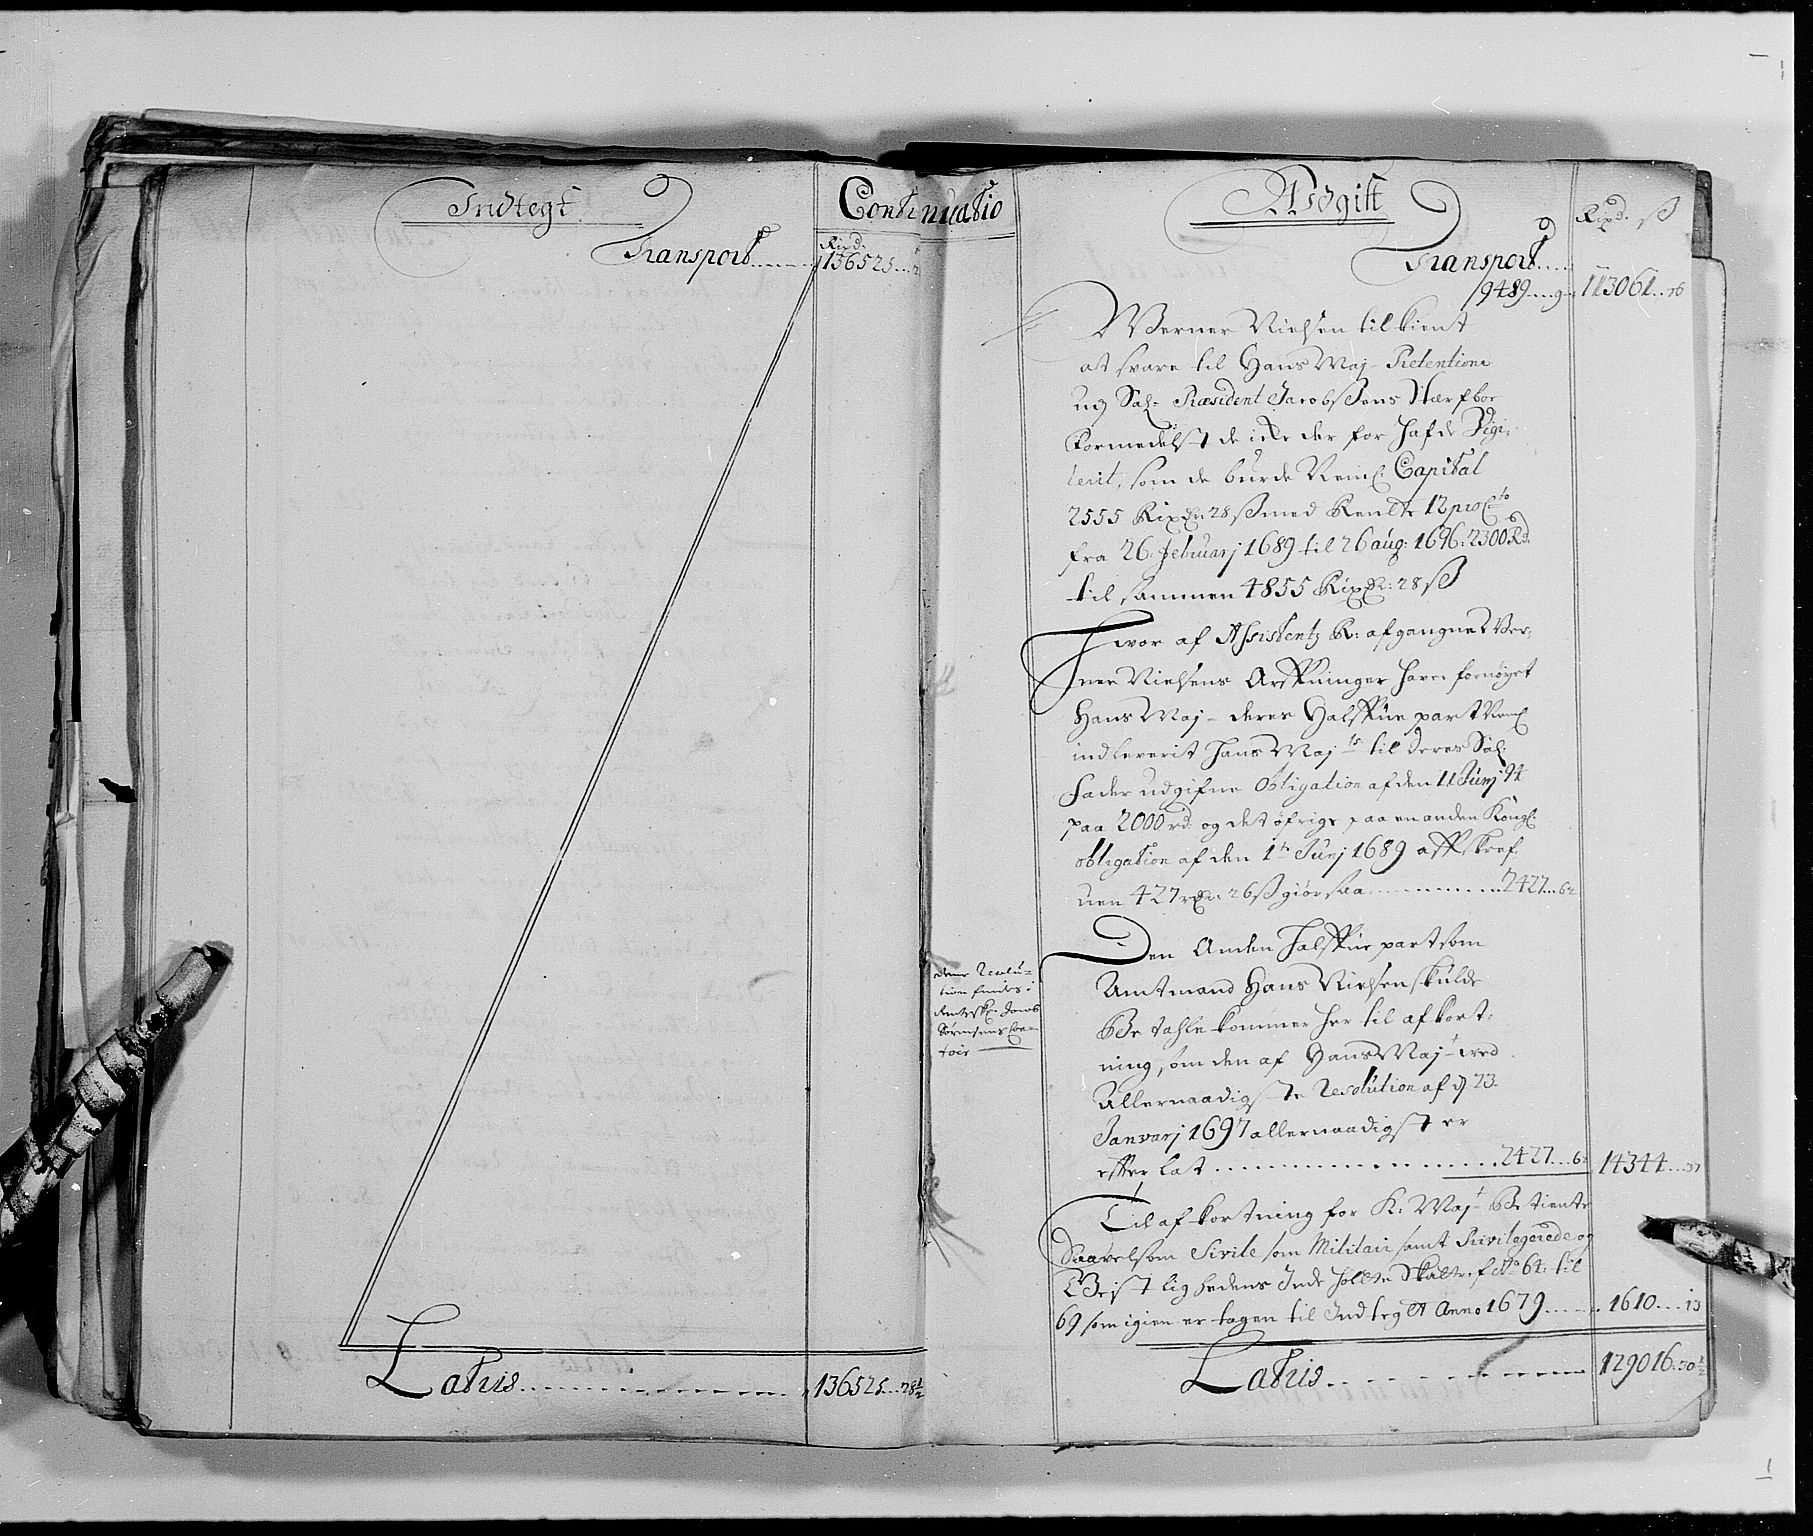 Indtegt
Continuatio
Transport
Rixd.
136525
Udgift
Rixd. ß
Transport
9489 9
113061 76
Werner Nielsen tilkient
at svare til Hans Maj Prætentione
udj Sal. Præsident Jacobsøens Stærfboe
formedelst de icke der for hafde Vigi-
lerit, som de burde Neml. Capital
2555 Rixdr. 28 ß med Rendte 12 pro Cto
fra 26. Februarj 1689 til 26 aug: 1696: 2300 Rd.
til sammen 4855 Rixdr: 28 ß
Hvor af Assistentz R: afgangne Ver-
ner Nielsens Arffuinger haver fornøyet
Hans Maj deres Halffue part Neml
indleverit Hans Maj ts til deres Sal:
Fader udgifne Obligation af den 11 Junj 94
paa 2000 rd. og det øfrige paa en anden Köngl:
obligation af den 1te Junj 1689 affskref-
uen 427 rdr. 26 ß giør saa 2427 62
Den Anden halffue part som
Amtmand Hans Nielsen skulde
betahle kommer her til afkort-
ning, som den af Hans Maj t ved
Allernaadigste Resolution af d 23.
Januarj 1697 allernaadigst er
effterlat 2427 62
14344 37
denne Resolu-
tion findes i
Renteskr. Jens
Sørensens Con-
toir
Til afkortning for K: Maj t betiente
Saavelsom Sivile som Militair samt Privilegerede og
Geistlighedens Inde holdte Skatter f No 64: til
69 som igien er tagen til Indtegt Anno 1679
1610 13
Latus
136525 28½
Latus
129016 30½